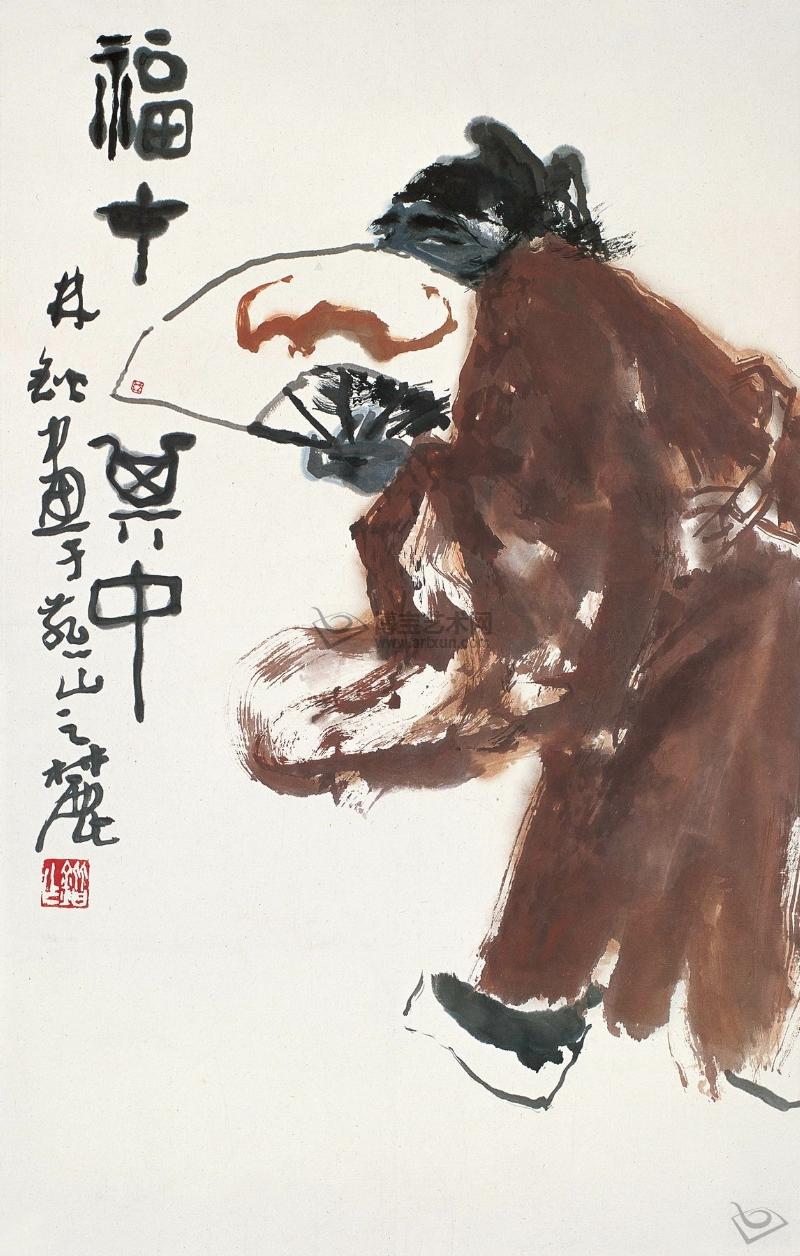 福在其中
林鍇畫于燕山之麓
博宝艺术网
www.artxun.com